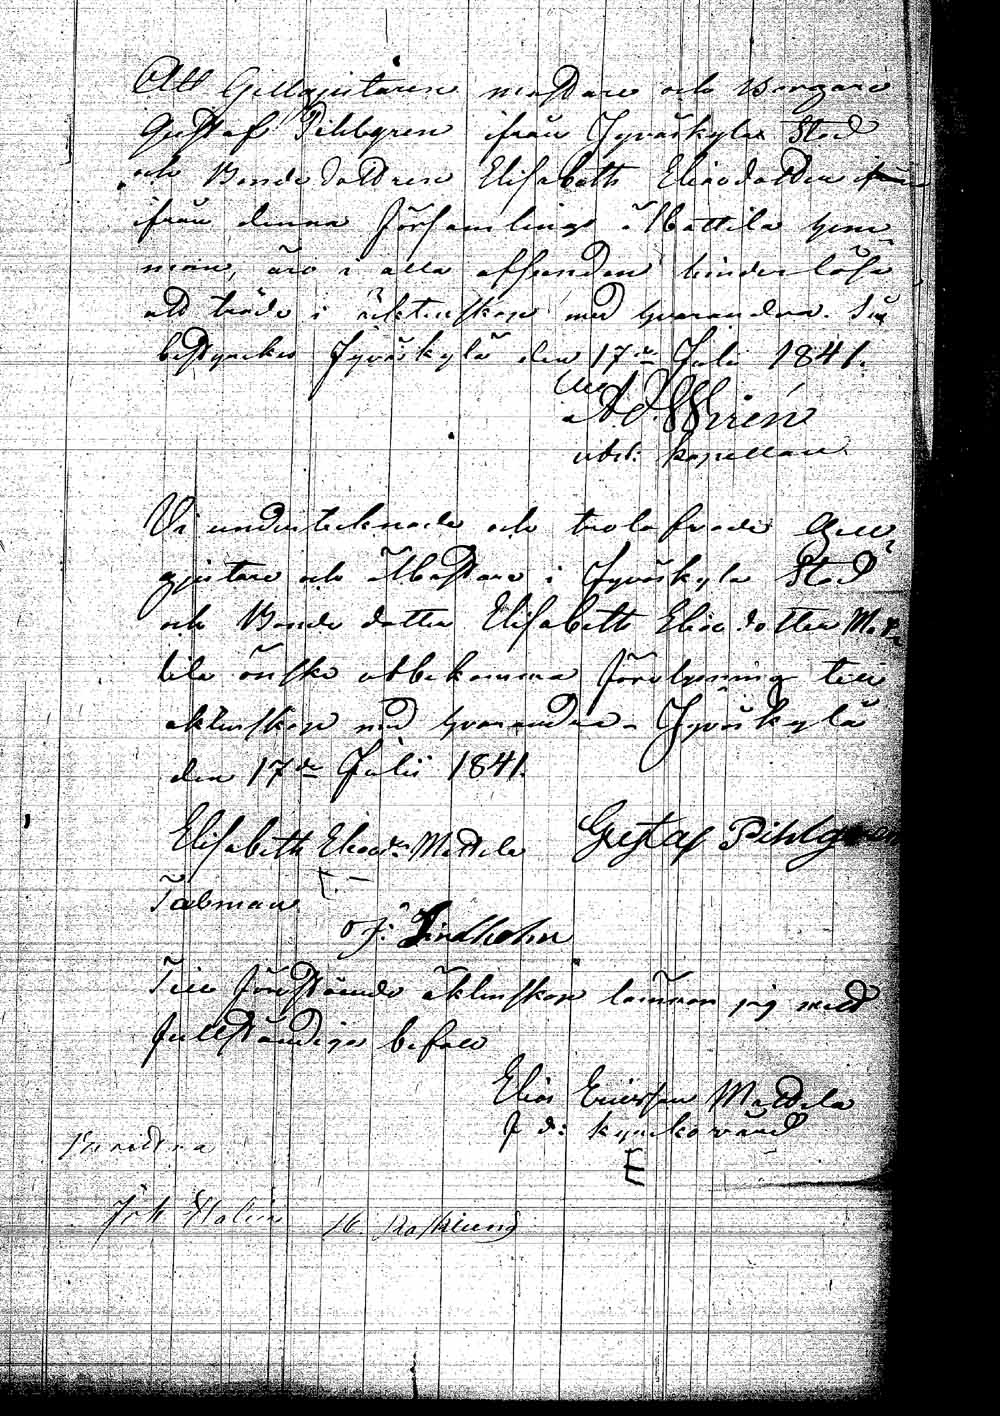 Att Gellgjutaren mästare och Borgare
Gustaf Pihlgren ifrån Jyväskylä Stad
och Bondedottren Elisabeth Eliædotter
ifrån denna Församlings Mattila hem̃
man, äro i alla afseenden hinderlöse
att träda i äktenskap med hvarandra. Så
bestyrckes Jyväskylä den 17de Juli 1841.
A. J. Wirén
vbst: kapellan
Vi undertecknade och trolofvade Gell-
gjutare och Mästare i Jyväskylä Stad
och Bonde dotter Elisabeth Eliæ dotter Mat-
tila önska utbekomma förelysning till
äktenskap med hvarandra. Jyväskylä
den 17de Julii 1841.
Elisabeth Eliæd:r Mattila Gustaf Pihlgren
Talman
J: Lindholm
Till förestående äktenskap lämnar jag mitt
fullständiga bifall
Elias Ericsson Mattila
f d: kyrckovärd
E
Bevittna
Joh Halin